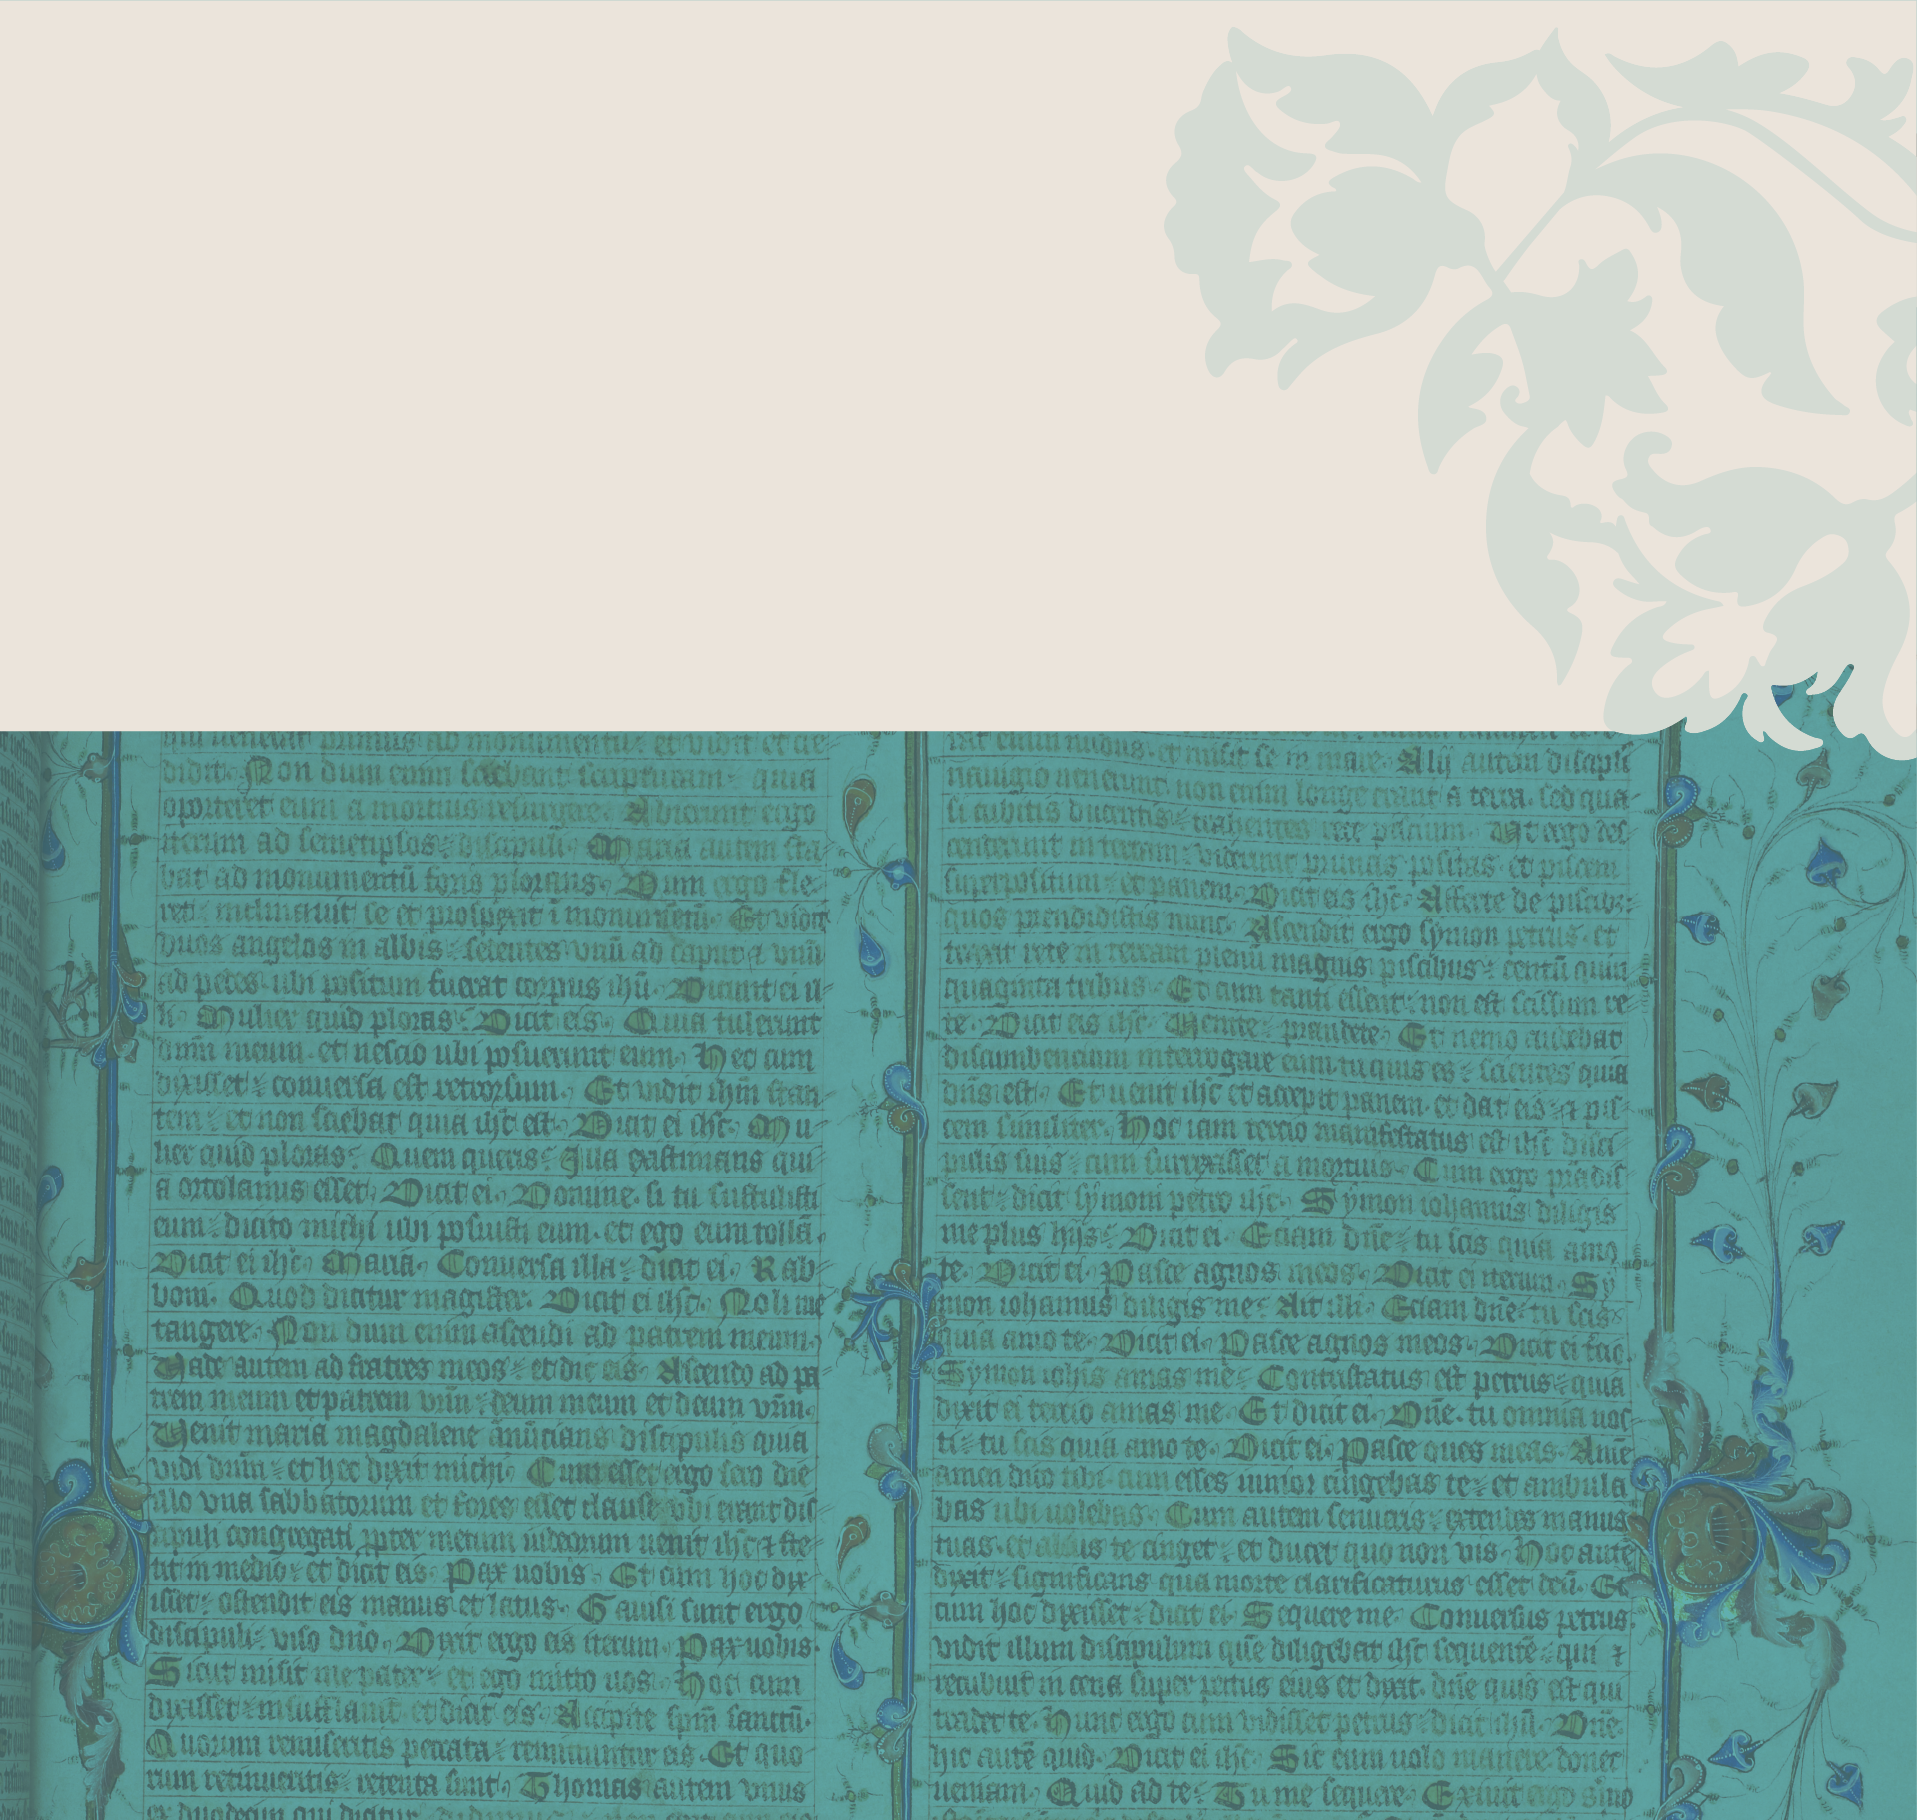 didit. Non dum enim sciebant scripturam: quia
oporteret eum a mortuis resurgere. Abierunt ergo
iterum ad semetipsos: discipuli. Maria autem sta-
bat ad monumentū foris plorans. Dum ergo fle-
ret: inclinauit se et prospexit ī monumētū. Et vidit
duos angelos in albis: sedentes vnū ad caput ⁊ vnū
ad pedes. ubi positum fuerat corpus ihū. Dicunt ei il-
li. Mulier quid ploras. Dicit eis. Quia tulerunt
dūm meum. et nescio ubi posuerunt eum. Hec cum
dixisset: conuersa est retrorsum. Et vidit ihm̄ stan
tem: et non sciebat quia ihc̄ est. Dicit ei ihc̄. Mu-
lier quid ploras. Quem queris. Illa existimans qui
a ortolanus esset. Dicit ei. Domine. si tu sustulisti
eum: dicito michi ubi posuisti eum. et ego eum tollā.
Dicit ei ihc̄. Mariā. Conuersa illa: dicit ei. Rab-
boni. Quod dicitur magister. Dicit ei ihc̄. Noli me
tangere. Non dum enim ascendi ad patrem meum.
Vade autem ad fratres meos: et dic eis. Ascendo ad pa
trem meum et patrem vr̄m: deum meum et deum vr̄m.
Venit maria magdalene ānūcians discipulis quia
vidi dn̄m: et hec dixit michi. Cum esset ergo sero die
illo vna sabbatorum et fores essent clause vbi erant dis
cipuli congregati ꝓpter metum iudeorum uenit ihc̄ ⁊ ste-
tit in medio: et dicit eis. Pax uobis. Et cum hoc dix
isset: ostendit eis manus et latus. Gauisi sunt ergo
discipuli: viso dn̄o. Dixit ergo eis iterum. Pax uobis.
Sicut misit me pater: et ego mitto uos. Hoc cum
dixisset: insufflauit. et dicit eis. Accipite spm̄ sanctū.
Quorum remiseritis peccata: remittuntur eis. Et quo
rum retinueritis: retenta sunt. Thomas autem vnus
ex duodecim qui dicitur
nudus. et misit se in mare. Alij autem discipli
nauigio uenerunt. non enim longe erant a terra. sed qua
si cubitis ducentis: trahentes rete piscium. Vt ergo des
cenderunt in terram: viderunt prunas positas. et piscem
superpositum: et panem. Dicit eis ihc̄. Afferte de piscib;
quos prendidistis nunc. Ascendit ergo symon petrus. et
traxit rete in terram plenū magnis piscibus: centū quin
quaginta tribus. Et cum tanti essent: non est scissum re
te. Dicit eis ihc̄. Uenite: prandete. Et nemo audebat
discumbencium interrogare eum. tu quis es: scientes quia
dn̄s est. Et uenit ihc̄ et accepit panem. et dat eis: ⁊ pis-
cem similiter. Hoc iam tercio manifestatus est ihc̄ disci
pulis suis: cum surrexisset a mortuis. Cum ergo prādis
sent: dicit symoni petro ihc̄. Symon iohannis diligis
me plus hijs. Dicit ei. Eciam dn̄e: tu scis quia amo
te. Dicit ei. Pasce agnos meos. Dicit ei iterum. Sy
mon iohannis diligis me. Ait illi. Eciam dn̄e. tu scis
quia amo te. Dicit ei. Pasce agnos meos. Dicit ei tēio.
Symon ioh̄is amas me. Contristatus est petrus: quia
dixit ei tercio amas me. Et dicit ei. Dn̄e. tu omnia nos
ti: tu scis quia amo te. Dicit ei. Pasce oues meas. Amē
amen dico tibi. cum esses iunior cingebas te: et ambula
bas ubi uolebas. Cum autem senueris: extendes manus
tuas. et alius te cinget: et ducet quo non vis. Hoc autē
dixit: significans qua morte clarificaturus esset deū. Et
cum hoc dixisset: dicit ei. Sequere me. Conuersus petrus.
vidit illum discipulum quē diligebat ihc̄ sequentē: qui ⁊
recubuit in cena super pectus eius et dixit. dn̄e quis est qui
tradet te. Hunc ergo cum vidisset petrus: dicit ihū. Dn̄e.
hic autē quid. Dicit ei ihc̄. Sic eum uolo manere donec
ueniam. Quid ad te. Tu me sequere. Exiuit ergo s̄mo